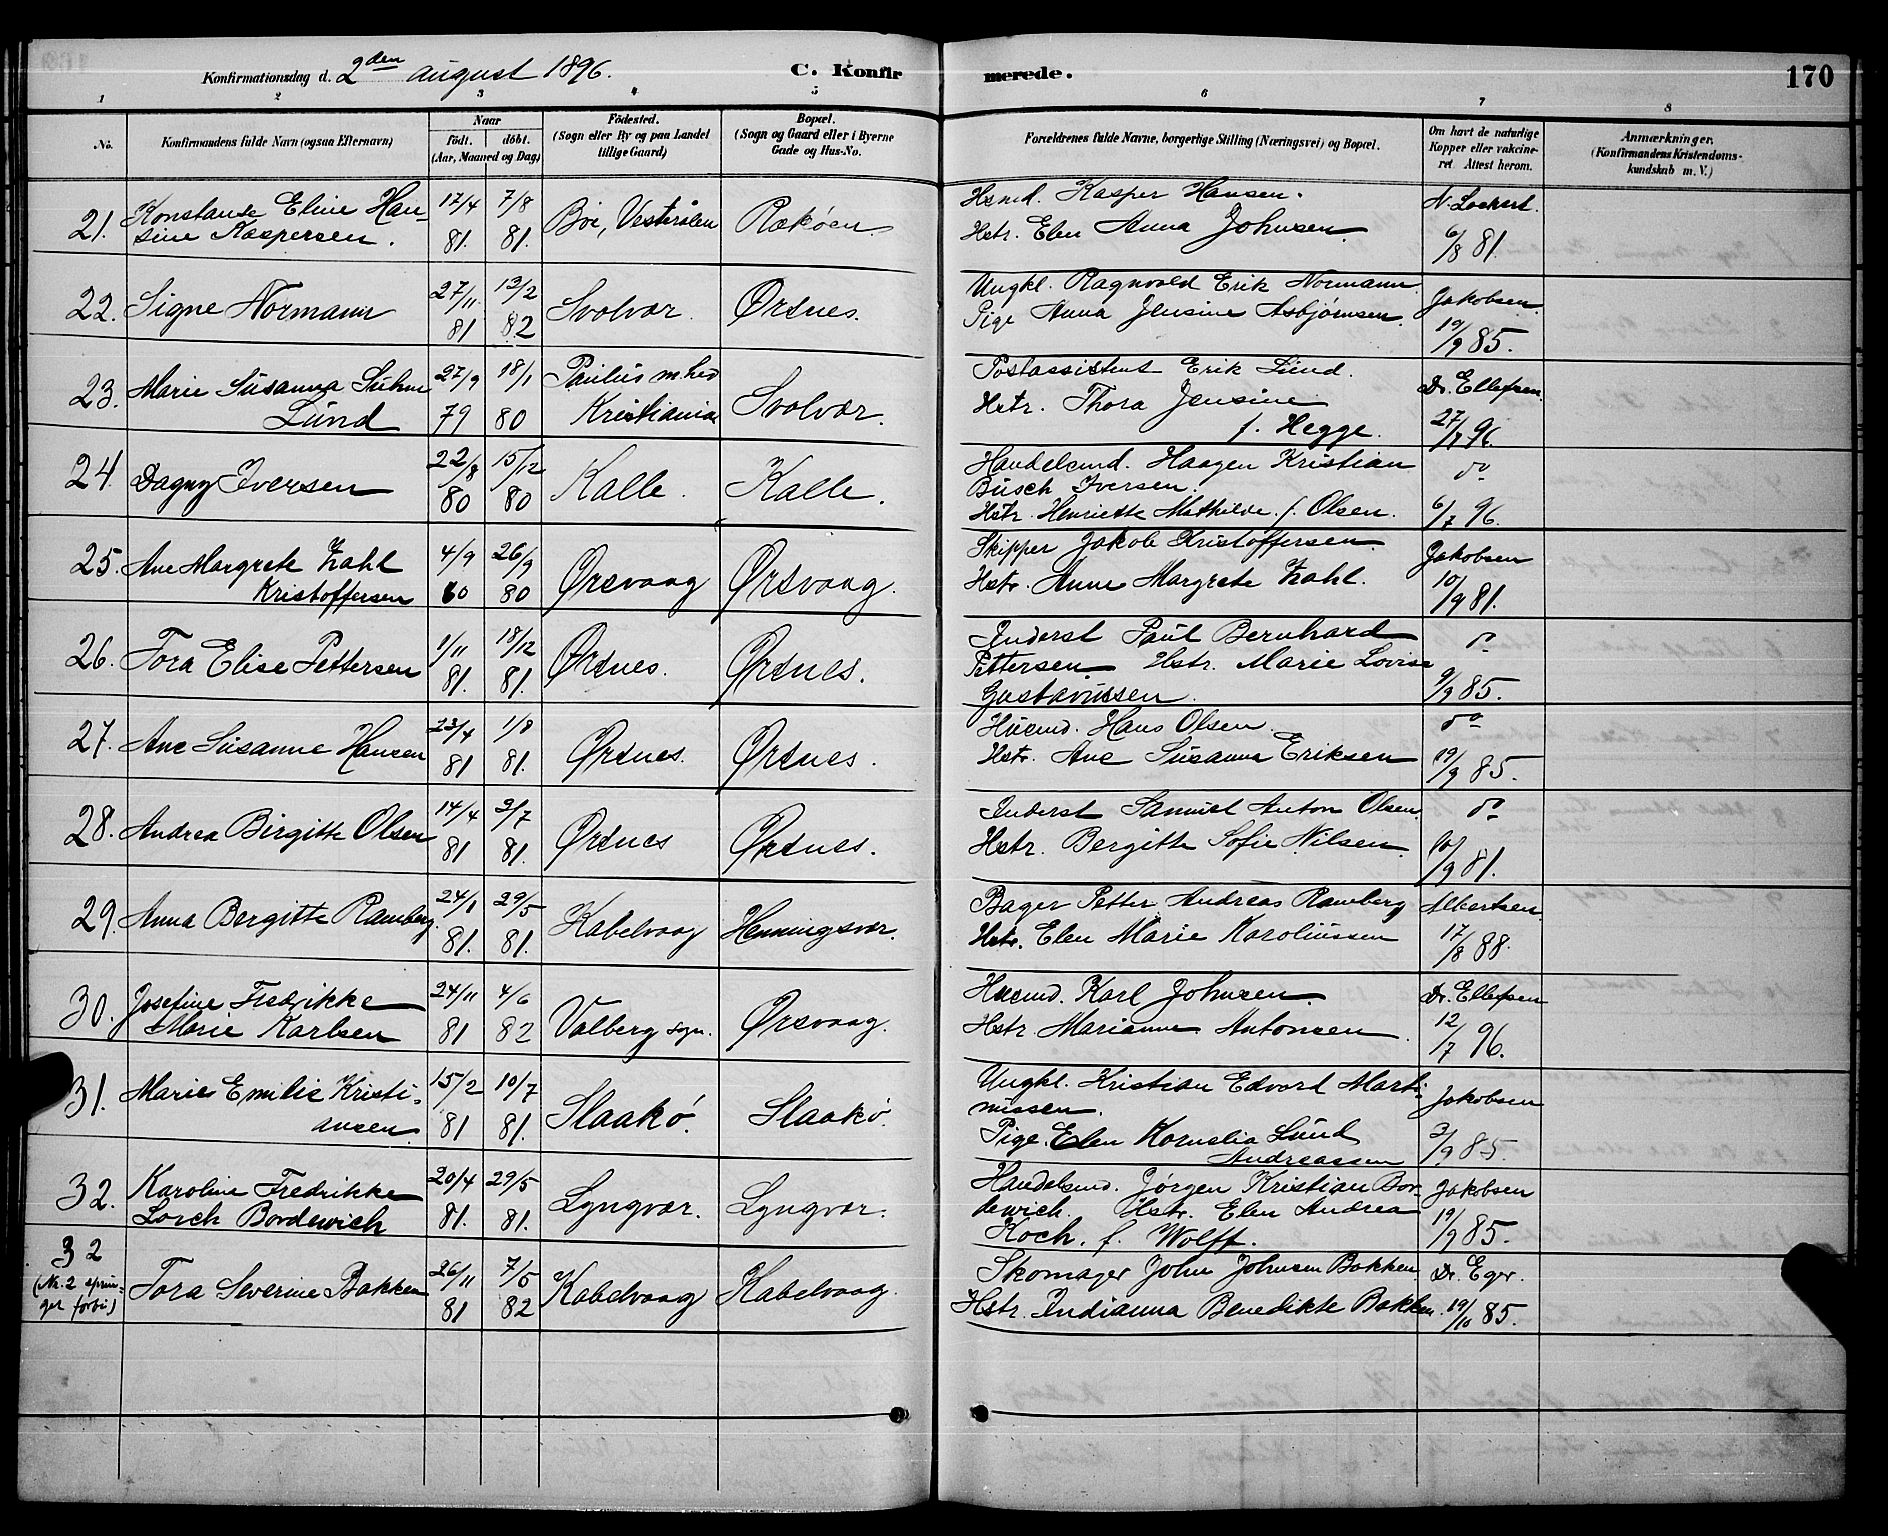 Konfirmationsdag d. 2den august 1896. C. Konfirmerede. 170
1 2 3 4 5 6 7 8
No.
Konfirmandens fulde Navn (ogsaa Efternavn)
Naar
födt. döbt.
(Aar, Maaned og Dag)
Födested.
(Sogn eller By og paa Landet
tillige Gaard)
Bopæl.
(Sogn og Gaard eller i Byerne
Gade og Hus-No.
Forældrenes fulde Navne, borgerlige Stilling (Næringsvei) og Bopæl.
Om havt de naturlige
Kopper eller vakcine-
ret Attest herom.
Anmærkninger.
(Konfirmandens Kristendoms-
kundskab m. V.)
21. Konstanse Eline Han-
sine Kaspersen. 17/4 81. 7/8 81. Bø, Vesterålen Rækøen
Hsmd. Kasper Hansen.
Hstr. Elen Anna Johnsen.
N. Lockert.
6/8 81.
22. Signe Normann 27/11 81 12/2 82 Svolvær. Ørsnes.
Ungkl. Ragnvald Erik Normann
Pige Anna Jensine Asbjørnsen.
Jakobsen
19/9 85.
23. Marie Susanna Suhm
Lund 27/9 79 18/1 80 Paulus m.hed
Kristiania Svolvær.
Postassistent Erik Lund.
Hstr. Thora Jensine
f. Hegge.
Dr. Ellefsen.
27/7 96
24. Dagny Iversen 22/8 80 15/12 80 Kalle. Kalle.
Handelsmd. Haagen Kristian
Busch Iversen.
Hstr. Henriette Mathilde. f. Olsen.
do
6/7 96.
25. Ane Margrete Zahl
Kristoffersen 4/9 60 26/9 80 Ørsvaag Ørsvaag.
Skipper Jakob Kristoffersen.
Hstr. Anne Margrete Zahl.
Jakobsen
10/9 81.
26. Tora Elise Pettersen 1/11 81. 18/12 81. Ørsnes. Ørsnes.
Inderst Paul Bernhard
Pettersen Hstr. Marie Lovise
Gustavussen.
do
9/9 85.
27. Ane Susanne Hansen 23/4 81 1/8 81. Ørsnes. Ørsnes.
Husmd. Hans Olsen.
Hstr. Ane Susanna Eriksen
do
19/9 85.
28. Andrea Birgitte Olsen 14/4 81 3/7 81. Ørsnes Ørsnes.
Inderst Samuel Anton Olsen.
Hstr. Bergitte Sofie Nilsen.
do
10/9 81.
29. Anna Bergitte Ramberg. 24/1 81. 29/5 81. Kabelvaag Henningsvær.
Bager Petter Andreas Ramberg
Hstr. Elen Marie Karoliussen
Albertsen.
17/8 88.
30. Josefine Fredrikke
Marie Karlsen 24/11 81 4/6 82 Valberg sogn. Ørsvaag.
Husmd. Karl Johnsen.
Hstr. Marianne Antonsen.
Dr. Ellefsen
12/7 96.
31. Marie Emilie Kristi-
ansen. 15/2 81 10/7 81. Slaakø. Slaakø.
Ungkl. Kristian Edvard Marti-
nussen.
Pige. Elen Kornelia Lund
Andreassen
Jakobsen
3/9 85.
32. Karoline Fredrikke
Lorch Bordewich 20/4 81. 29/5 81. Lyngvær. Lyngvær.
Handelsmd. Jørgen Kristian Bor-
dewich. Hstr. Elen Andrea
Koch. f. Wolff.
Jakobsen
19/9 85.
32
(Nr. 2 sprin-
ger forbi)
Tora Severine Bakken 26/11 81 7/5 82 Kabelvaag Kabelvaag.
Skomager John Johnsen Bakken
Hstr. Indianna Benedikte Bakken.
Dr. Eger.
19/10 85.